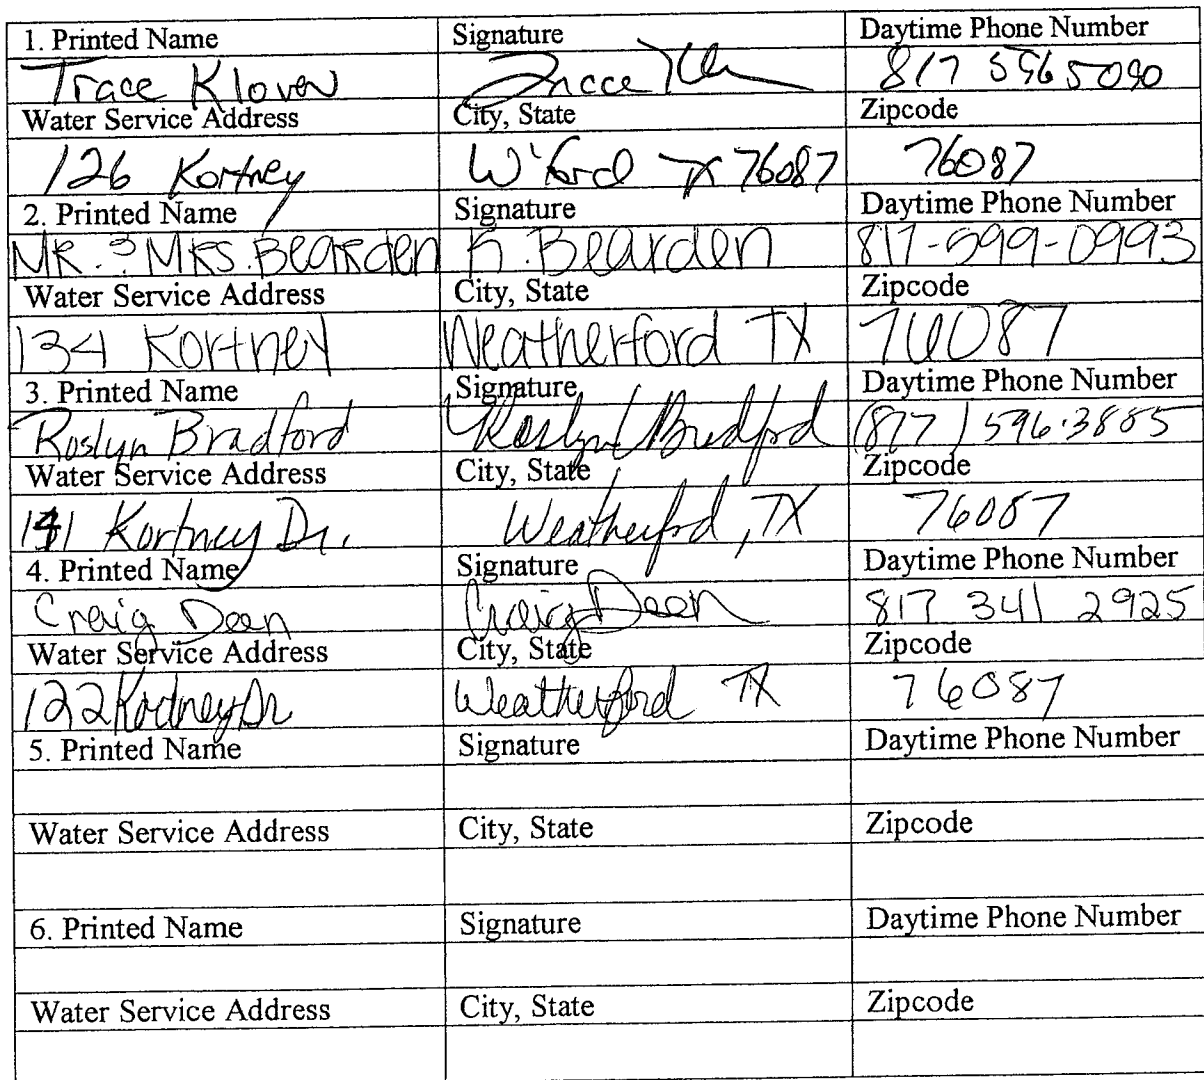 1. Printed Name Signature Daytime Phone Number
Trace Klover Trace Kl 817 596 5090
Water Service Address City, State Zipcode
126 Kortney W'ford TX 76087 76087
2. Printed Name Signature Daytime Phone Number
MR. & MRS. BEARDEN K. Bearden 817-599-0993
Water Service Address City, State Zipcode
134 Kortney Weatherford TX 76087
3. Printed Name Signature Daytime Phone Number
Roslyn Bradford Roslyn Bradford (817) 596-3885
Water Service Address City, State Zipcode
141 Kortney Dr. Weatherford, TX 76087
4. Printed Name Signature Daytime Phone Number
Craig Deen Craig Deen 817 341 2925
Water Service Address City, State Zipcode
122 Kortney Dr Weatherford TX 76087
5. Printed Name Signature Daytime Phone Number
Water Service Address City, State Zipcode
6. Printed Name Signature Daytime Phone Number
Water Service Address City, State Zipcode